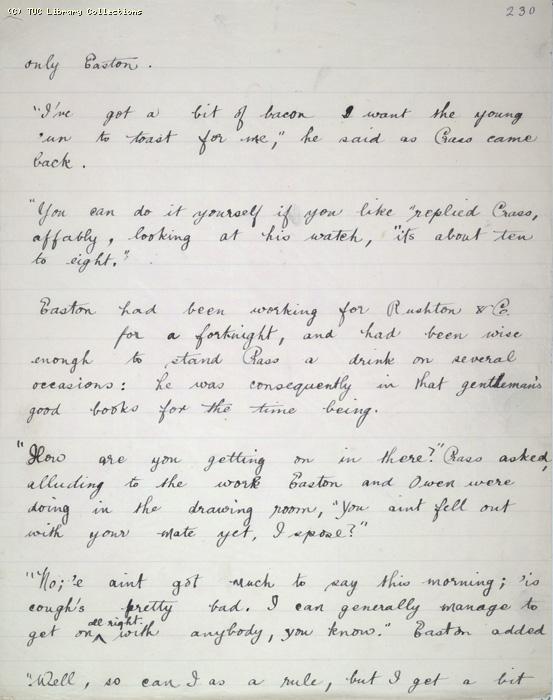 (C) TUC Library Collections
230
only Easton.
"I've got a bit of bacon I want the young
'un to toast for me," he said as Crass came
back.
"You can do it yourself if you like" replied Crass,
affably, looking at his watch, "its about ten
to eight."
Easton had been working for Rushton & Co.
for a fortnight, and had been wise
enough to stand Crass a drink on several
occasions: he was consequently in that gentleman's
good books for the time being.
"How are you getting on in there?" Crass asked,
alluding to the work Easton and Owen were
doing in the drawing room, "You aint fell out
with your mate yet, I spose?"
"No; 'e aint got much to say this morning; 'is
cough's pretty bad. I can generally manage to
get on all right with anybody, you know." Easton added
"Well, so can I as a rule, but I get a bit